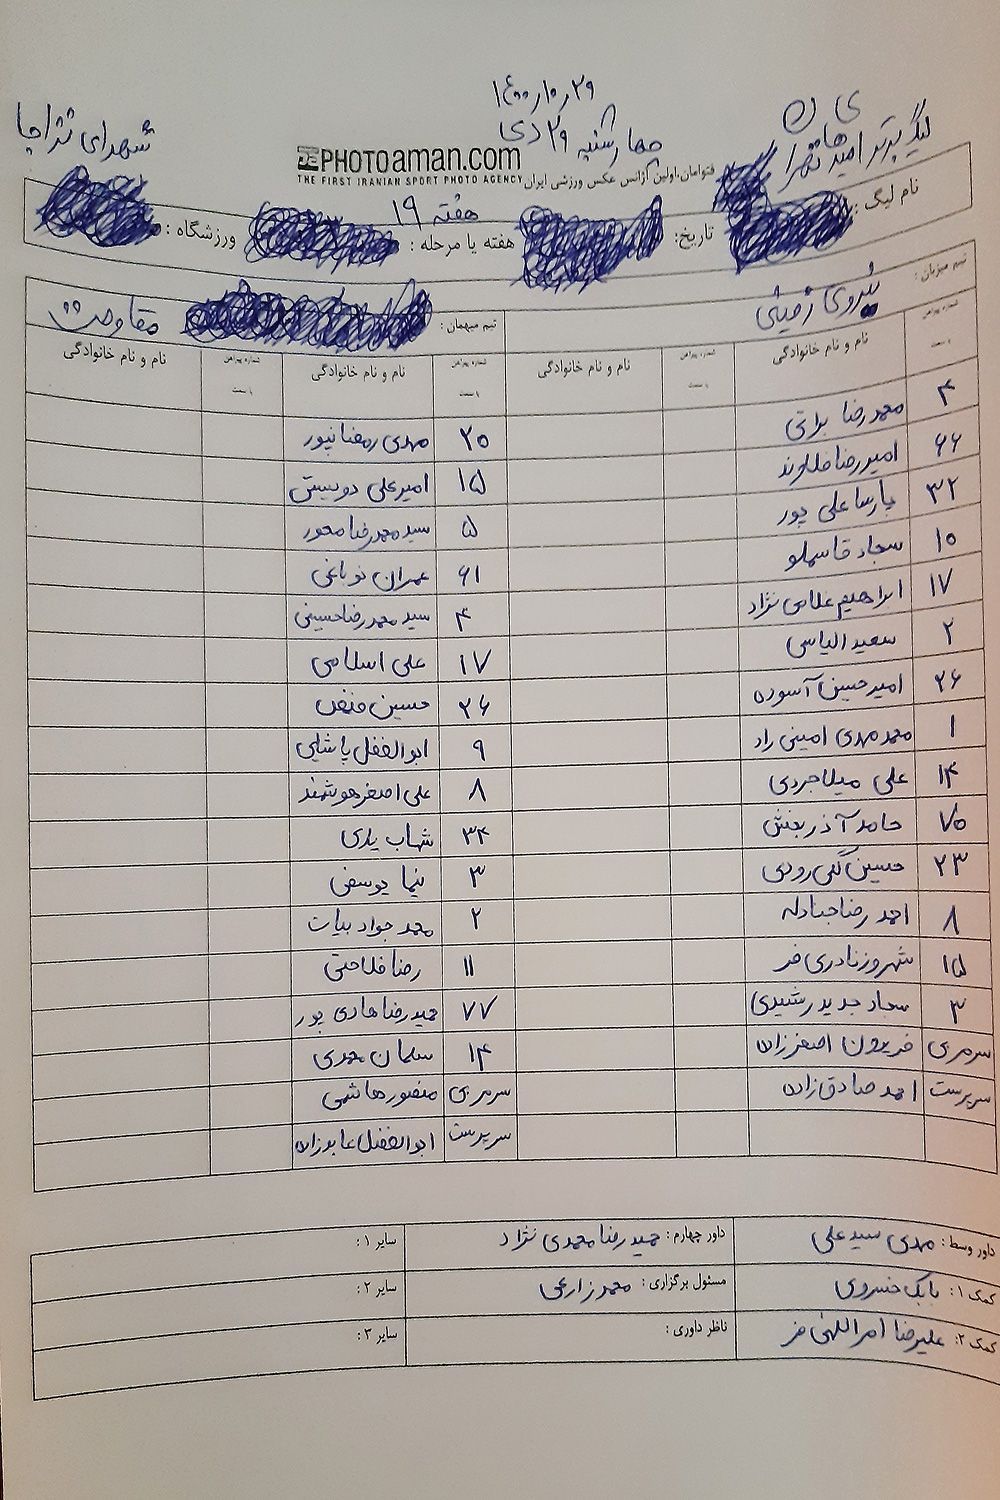 ۱۴۰۰ر۱۰ر۲۹
چهارشنبه ۲۹ دی
لیگ برتر امیدهای تهران
شهدای نزاجا
PHOTOAMAN.COM
THE FIRST IRANIAN SPORT PHOTO AGENCY
فتوامان،اولین آژانس عکس ورزشی ایران
نام لیگ: تاریخ: هفته یا مرحله: هفته ۱۹ ورزشگاه:
تیم میزبان: نیروی زمینی تیم میهمان: مقاومت
شماره پیراهن یا سمت نام و نام خانوادگی شماره پیراهن یا سمت نام و نام خانوادگی شماره پیراهن یا سمت نام و نام خانوادگی شماره پیراهن یا سمت نام و نام خانوادگی
۴ محمدرضا براتی ۲۰ مهدی رمضانپور
۶۶ امیررضا ۱۵ امیرعلی
۳۲ پارسا علی پور ۵ سید محمدرضا محور
۱۰ سجاد قاسملو ۶۱ عمران نوباغی
۱۷ ابراهیم غلامی نژاد ۴ سید محمدرضا حسینی
۲ سعید الیاسی ۱۷ علی اسلامی
۲۶ امیرحسین آسوده ۲۶ حسین
۱ محمدمهدی امینی راد ۹ ابوالفضل پاشایی
۱۴ علی میلاجردی ۸ علی اصغر هوشمند
۷۰ حامد آذربخش ۳۴ شهاب یاری
۲۳ حسین گلی رودی ۳ نیما یوسفی
۸ احمدرضا ۲ محمدجواد بیات
۱۵ شهروز نادری فر ۱۱ رضا فلاحتی
۳ سجاد جدید رشیدی ۷۷ حمیدرضا هادی پور
سرمربی فریدون اصغرزاده ۱۴ سلمان محمدی
سرپرست احمد صادق زاده سرمربی منصور هاشمی
سرپرست ابوالفضل عابدزاده
داور وسط: مهدی سیدعلی داور چهارم: حمیدرضا محمدی نژاد سایر ۱:
کمک ۱: بابک خسروی مسئول برگزاری: محمد زارعی سایر ۲:
کمک ۲: علیرضا امراللهی فر ناظر داوری: سایر ۳: